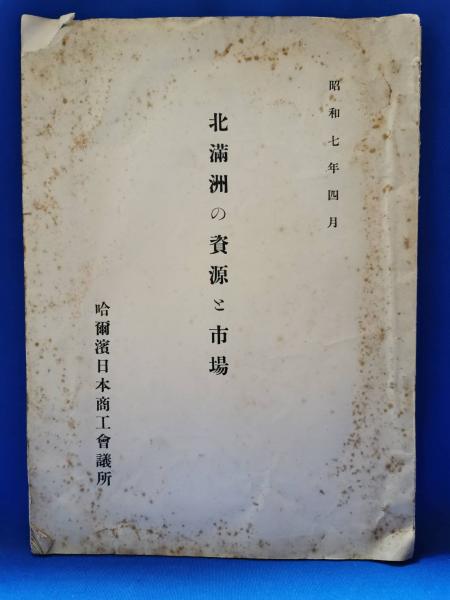 昭和七年四月
北滿洲の資源と市場
哈爾濱日本商工會議所